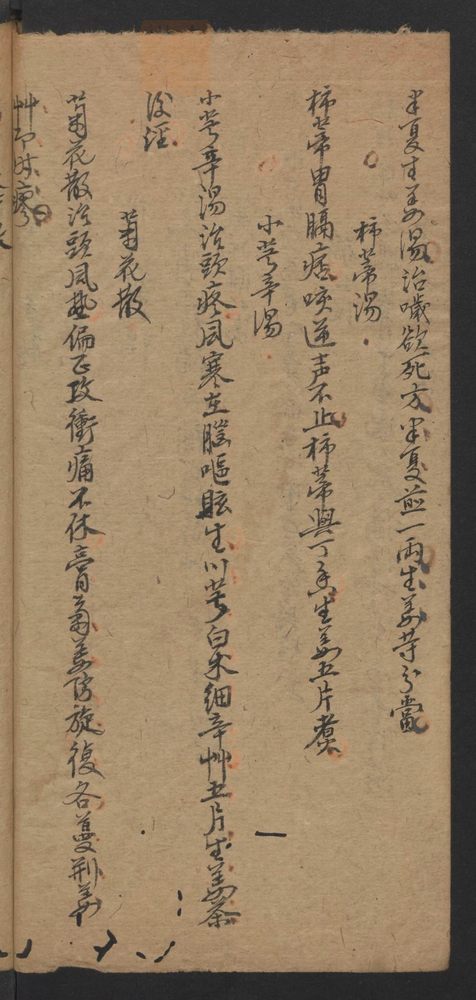 半夏生姜湯治噦欲死方半夏煎一兩生姜等分嘗
柿蒂湯
柿蒂胃膈痞咳逆声不止柿蒂與丁香生姜五片煮
小芎辛湯
小芎辛湯治頭疼風寒在腦嘔眩生川芎白朮細辛艸五片生姜茶
後注
菊花散
菊花散治頭風熱偏正攻衝痛不休膏菊羌防旋復各蔓荆姜
艸